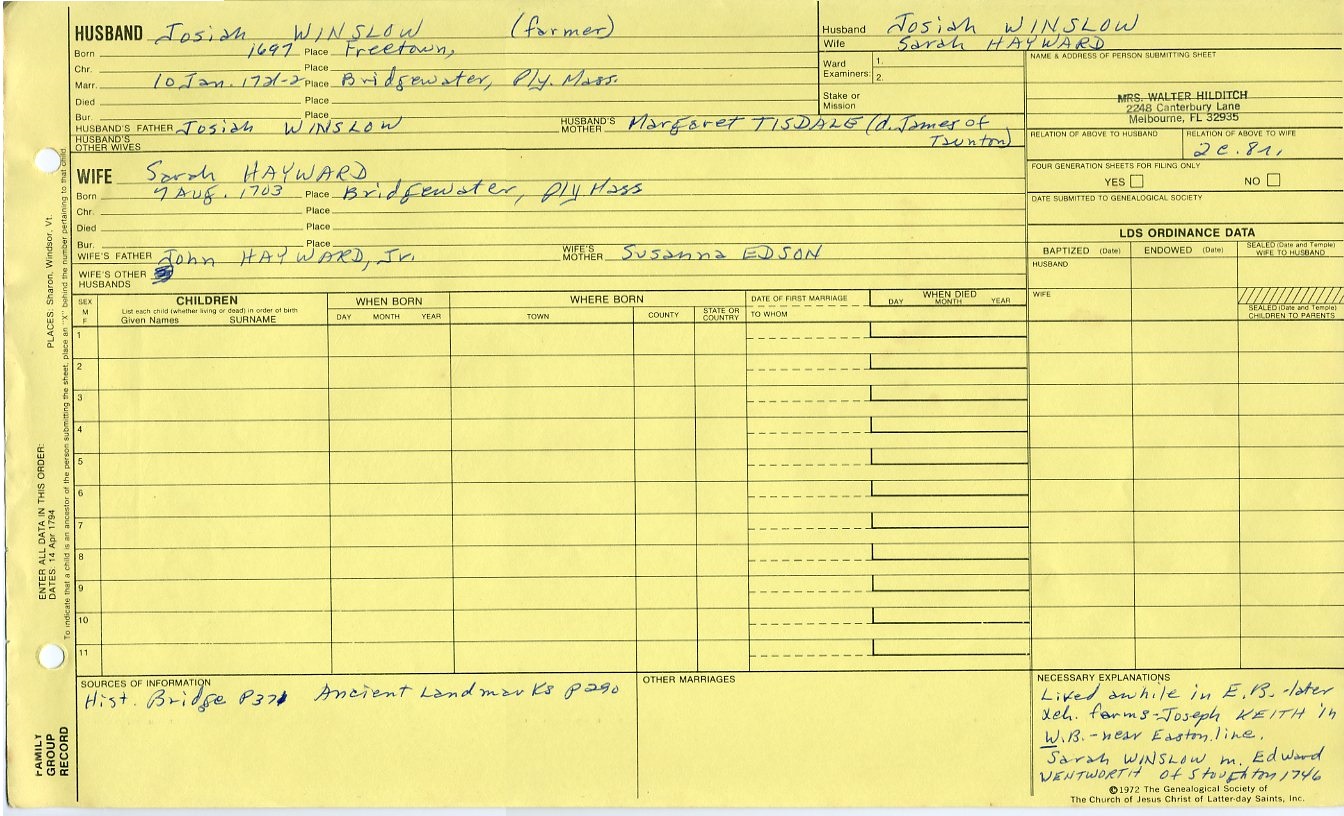 HUSBAND Josiah WINSLOW (farmer)
Born 1697 Place Freetown,
Chr. Place
Marr. 10 Jan. 1721-2 Place Bridgewater, Ply. Mass.
Died Place
Bur. Place
HUSBAND'S FATHER Josiah WINSLOW HUSBAND'S MOTHER Margaret TISDALE (d. James of Taunton)
HUSBAND'S OTHER WIVES
Husband Josiah WINSLOW
Wife Sarah HAYWARD
Ward Examiners: 1.
2.
Stake or Mission
NAME & ADDRESS OF PERSON SUBMITTING SHEET
MRS. WALTER HILDITCH
2248 Canterbury Lane
Melbourne, FL 32935
RELATION OF ABOVE TO HUSBAND
RELATION OF ABOVE TO WIFE
2c.8r.
FOUR GENERATION SHEETS FOR FILING ONLY
YES NO
DATE SUBMITTED TO GENEALOGICAL SOCIETY
WIFE Sarah HAYWARD
Born 7 Aug. 1703 Place Bridgewater, Ply Mass
Chr. Place
Died Place
Bur. Place
WIFE'S FATHER John HAYWARD, Jr. WIFE'S MOTHER Susanna EDSON
WIFE'S OTHER HUSBANDS
LDS ORDINANCE DATA
BAPTIZED (Date) ENDOWED (Date) SEALED (Date and Temple) WIFE TO HUSBAND
HUSBAND
WIFE
SEALED (Date and Temple) CHILDREN TO PARENTS
SEX M F
CHILDREN
List each child (whether living or dead) in order of birth
Given Names SURNAME
WHEN BORN
DAY MONTH YEAR
WHERE BORN
TOWN COUNTY STATE OR COUNTRY
DATE OF FIRST MARRIAGE
TO WHOM
WHEN DIED
DAY MONTH YEAR
1
2
3
4
5
6
7
8
9
10
11
SOURCES OF INFORMATION
Hist. Bridge P371 Ancient Landmarks P290
OTHER MARRIAGES
NECESSARY EXPLANATIONS
Lived awhile in E.B.-later
xch. farms-Joseph KEITH in
W.B.-near Easton line.
Sarah WINSLOW m. Edward
WENTWORTH of Stoughton 1746
©1972 The Genealogical Society of
The Church of Jesus Christ of Latter-day Saints, Inc.
FAMILY GROUP RECORD
ENTER ALL DATA IN THIS ORDER:
DATES: 14 Apr 1794
PLACES: Sharon, Windsor, Vt.
To indicate that a child is an ancestor of the person submitting the sheet, place an "X" behind the number pertaining to that child.